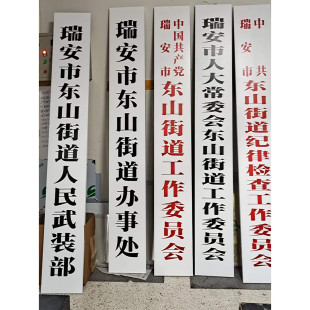 瑞安市东山街道人民武装部
瑞安市东山街道办事处
中国共产党
瑞安市
东山街道工作委员会
瑞安市人大常委会东山街道工作委员会
中共
瑞安市
东山街道纪律检查工作委员会